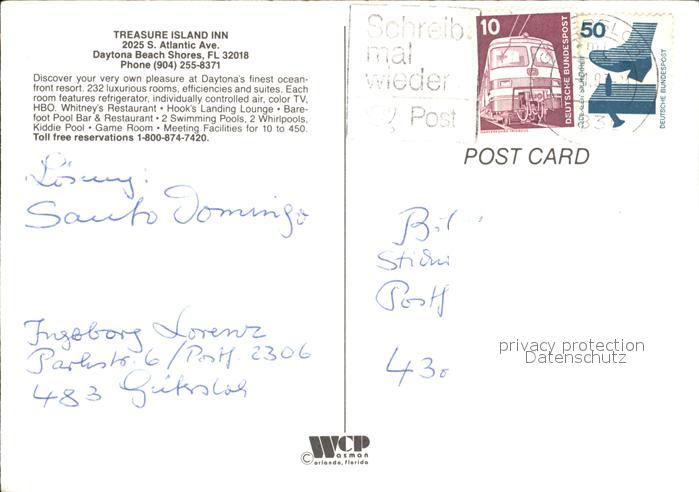 TREASURE ISLAND INN
2025 S. Atlantic Ave.
Daytona Beach Shores, FL 32018
Phone (904) 255-8371
Discover your very own pleasure at Daytona's finest ocean-
front resort. 232 luxurious rooms, efficiencies and suites. Each
room features refrigerator, individually controlled air, color TV,
HBO. Whitney's Restaurant • Hook's Landing Lounge • Bare-
foot Pool Bar & Restaurant • 2 Swimming Pools, 2 Whirlpools,
Kiddie Pool • Game Room • Meeting Facilities for 10 to 450.
Toll free reservations 1-800-874-7420.
Lösung:
Santo Domingo
Ingeborg Lorenz
Parkstr. 6 / Postf. 2306
483 Gütersloh
Schreib
mal
wieder
Post
10
DEUTSCHE BUNDESPOST
50
DEUTSCHE BUNDESPOST
POST CARD
Bil
Postf
430
privacy protection
Datenschutz
WCP
©Wasman
orlando, florida